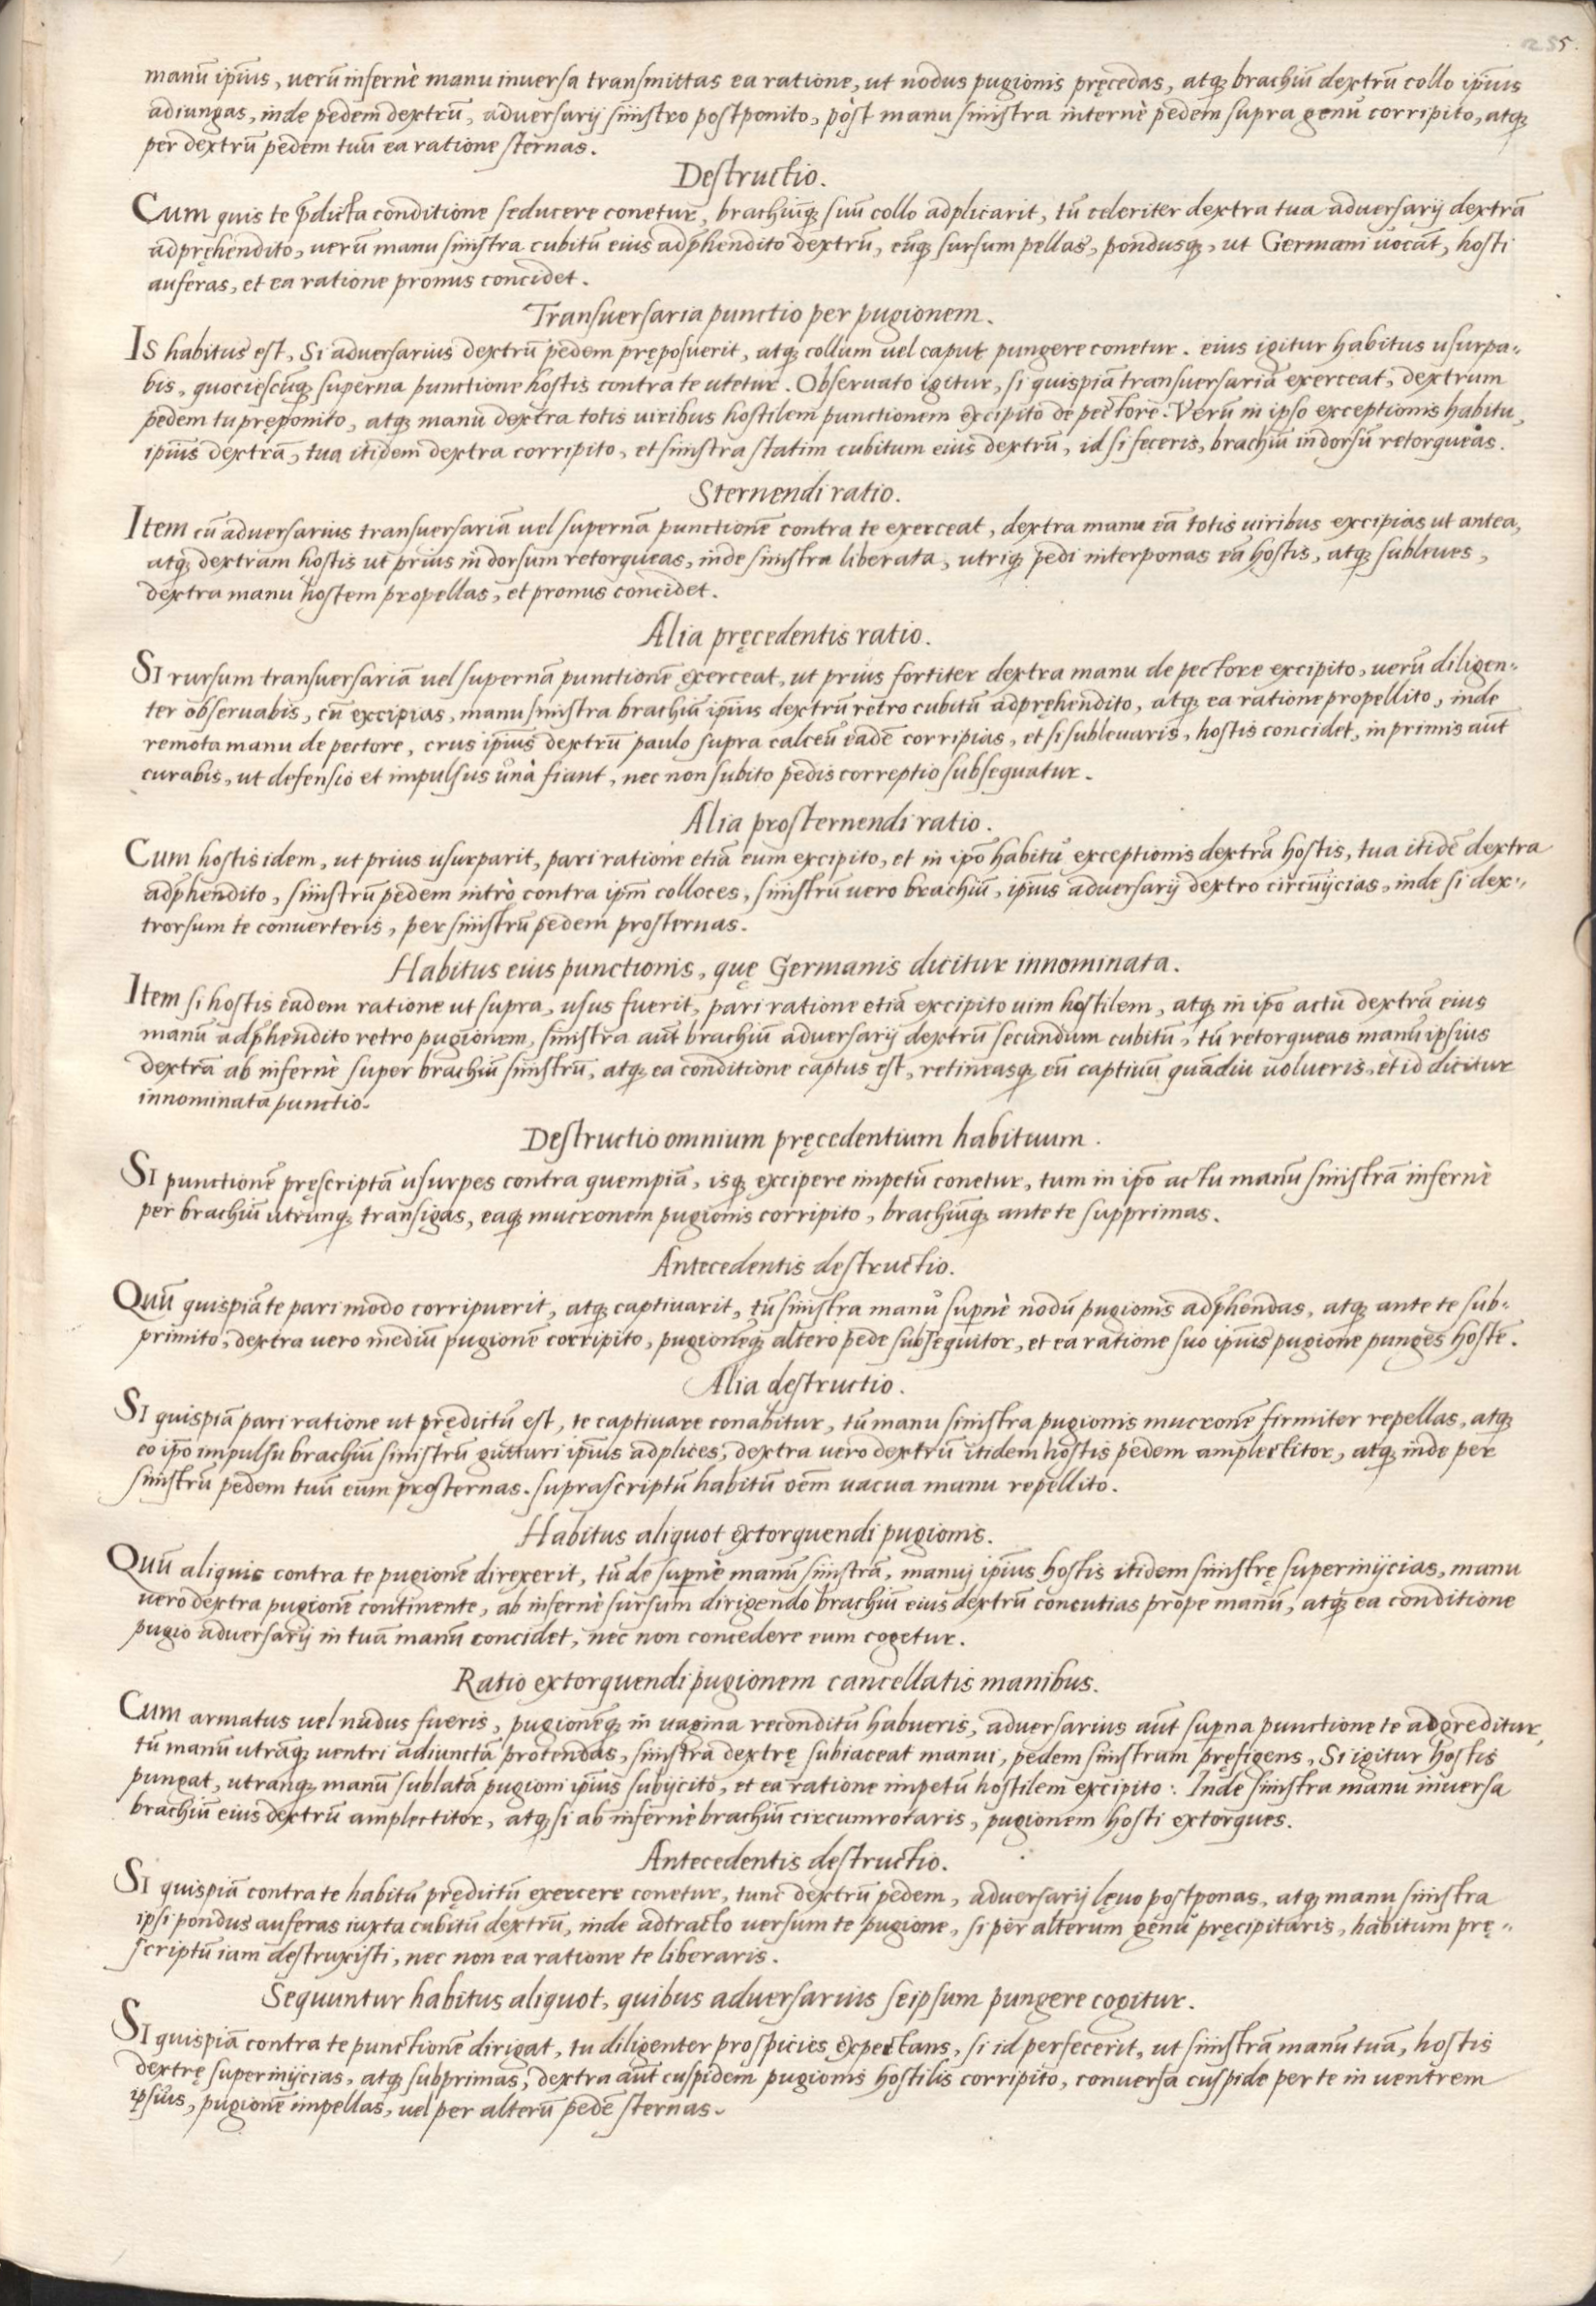 255.
manū ip̄ius, uerū infernè manu inuersa transmittas ea ratione, ut nodus pugionis pręcedas, atq̨ brachiū dextrū collo ip̄ius
adiungas, inde pedem dextrū, adversarij sinistro postponito, pòst manu sinistra internè pedem supra genu corripito, atq̨
per dextrū pedem tuū ea ratione sternas.
Destructio.
Cum quis te p̄dicta conditione seducere conetur, brachiūq̨ suū collo adplicarit, tū celeriter dextra tua adversarij dextrā
adpręhendito, uerū manu sinistra cubitū eius adp̄hendito dextrū, eūq̨ sursum pellas, pondusq̨, ut Germani uocāt, hosti
auferas, et ea ratione pronus concidet.
Transuersaria punctio per pugionem.
Is habitus est, Si adversarius dextrū pedem pręposuerit, atq̨ collum uel caput pungere conetur. eius igitur habitus usurpa-
bis, quociescūq̨ superna punctione hostis contra te utetur. Obseruato igitur, si quispiā transuersariā exerceat, dextrum
pedem tu preponito, atq̨ manu dextra totis uiribus hostilem punctionem excipito de pectore. Verū in ipso exceptionis habitu,
ip̄ius dextrā, tua itidem dextra corripito, et sinistra statim cubitum eius dextrū, id si feceris, brachiū in dorsū retorqueas.
Sternendi ratio.
Item cū adversarius transuersariā uel supernā punctionē contra te exerceat, dextra manu eā totis uiribus excipias ut antea,
atq̨ dextram hostis ut prius in dorsum retorqueas, inde sinistra liberata, utriq̨ pedi interponas eā hostis, atq̨ subleues,
dextra manu hostem propellas, et pronus concidet.
Alia pręcedentis ratio.
Si rursum transuersariā uel supernā punctionē exerceat, ut prius fortiter dextra manu de pectore excipito, uerū diligen-
ter obseruabis, cū excipias, manu sinistra brachiū ip̄ius dextrū retro cubitū adpręhendito, atq̨ ea ratione propellito, inde
remota manu de pectore, crus ip̄ius dextrū paulo supra calceū eādē corripias, et si subleuaris, hostis concidet, in primis aūt
curabis, ut defensio et impulsus unà fiant, nec non subito pedis correptio subsequatur.
Alia prosternendi ratio.
Cum hostis idem, ut prius usurparit, pari ratione etiā eum excipito, et in ip̄o habitu exceptionis dextrā hostis, tua itidē dextra
adp̄hendito, sinistrū pedem intrò contra ip̄m colloces, sinistrū uero brachiū, ip̄ius adversarij dextro circūijcias, inde si dex-
trorsum te conuerteris, per sinistrū pedem prosternas.
Habitus eius punctionis, quę Germanis dicitur innominata.
Item si hostis eadem ratione ut supra, usus fuerit, pari ratione etiā excipito uim hostilem, atq̨ in ip̄o actu dextrā eius
manū adp̄hendito retro pugionem, sinistra aūt brachiū adversarij dextrū secundum cubitū, tū retorqueas manū ipsius
dextrā ab infernè super brachiū sinistrū, atq̨ ea conditione captus est, retineasq̨ eū captiuū quādiu uolueris, et id dicitur
innominata punctio.
Destructio omnium pręcedentium habituum.
Si punctionē pręscriptā usurpes contra quempiā, isq̨ excipere impetū conetur, tum in ip̄o actu manū sinistrā infernè
per brachiū utrunq̨ transigas, eaq̨ mucronem pugionis corripito, brachiūq̨ ante te supprimas.
Antecedentis destructio.
Quū quispiā te pari modo corripuerit, atq̨ captiuarit, tū sinistra manu sup̄nè nodū pugionis adp̄hendas, atq̨ ante te sub-
primito, dextra uero mediū pugionē corripito, pugionēq̨ altero pede subsequitor, et ea ratione suo ip̄ius pugione punges hostē.
Alia destructio.
Si quispiā pari ratione ut prędictū est, te captiuare conabitur, tū manu sinistra pugionis mucronē firmiter repellas, atq̨
eo ip̄o impulsu brachiū sinistrū gutturi ip̄ius adplices, dextra uero dextrū itidem hostis pedem amplectitor, atq̨ inde per
sinistrū pedem tuū eum prosternas. suprascriptū habitū oēm uacua manu repellito.
Habitus aliquot extorquendi pugionis.
Quū aliquis contra te pugionē direxerit, tū de sup̄nè manū sinistrā, manuj ip̄ius hostis itidem sinistrę superinijcias, manu
uero dextra pugionē continente, ab infernè sursum dirigendo brachiū eius dextrū concutias prope manū, atq̨ ea conditione
pugio adversarij in tuā manū concidet, nec non concedere eum cogetur.
Ratio extorquendi pugionem cancellatis manibus.
Cum armatus uel nudus fueris, pugionēq̨ in uagina reconditū habueris, adversarius aūt sup̄na punctione te adgreditur,
tū manū utrāq̨ uentri adiunctā protendas, sinistra dextrę subiaceat manui, pedem sinistrum pręfigens, Si igitur hostis
pungat, utranq̨ manū sublatā pugioni ip̄ius subijcito, et ea ratione impetū hostilem excipito: Inde sinistra manu inuersa
brachiū eius dextrū amplectitor, atq̨ si ab infernè brachiū circumrotaris, pugionem hosti extorques.
Antecedentis destructio.
Si quispiā contra te habitū prędictū exercere conetur, tunc dextrū pedem, adversarij lęuo postponas, atq̨ manu sinistra
ipsi pondus auferas iuxta cubitū dextrū, inde adtracto uersum te pugione, si per alterum genu pręcipitaris, habitum prę-
scriptū iam destruxisti, nec non ea ratione te liberaris.
Sequuntur habitus aliquot, quibus adversarius seipsum pungere cogitur.
Si quispiā contra te punctionē dirigat, tu diligenter prospicies expectans, si id perfecerit, ut sinistrā manū tuā, hostis
dextrę superinijcias, atq̨ subprimas, dextra aūt cuspidem pugionis hostilis corripito, conuersa cuspide per te in uentrem
ipsius, pugionē impellas, uel per alterū pedē sternas.